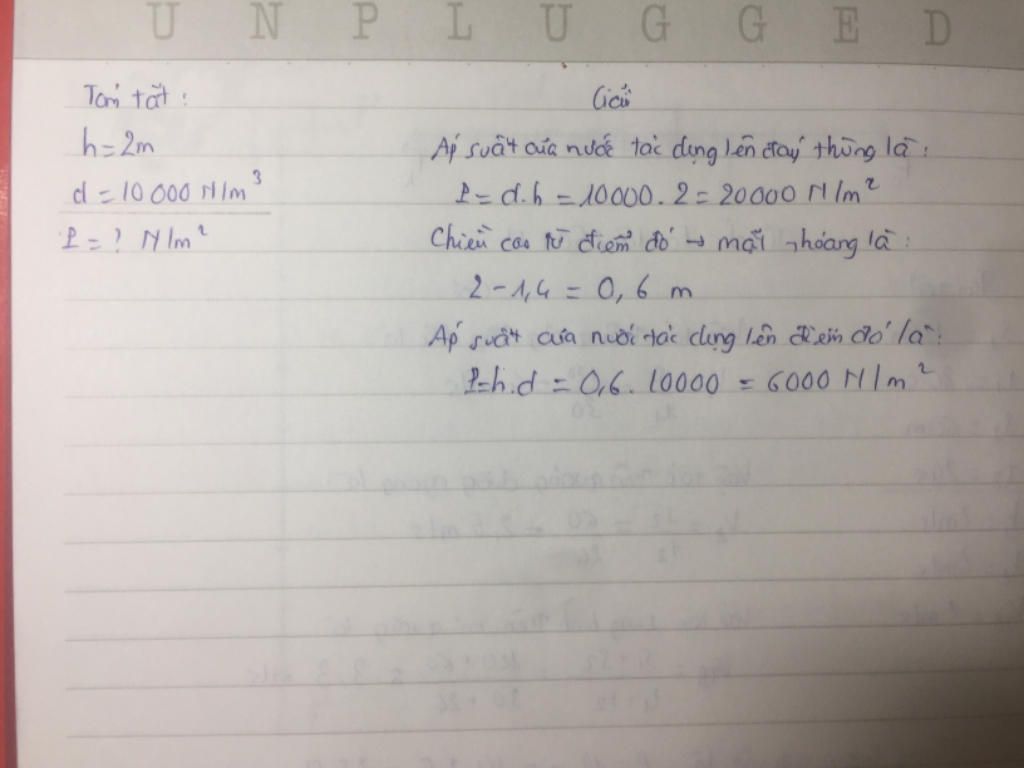 UNPLUGGED
Tóm tắt:
h = 2m
d = 10 000 N/m³
P = ? N/m²
Giải
Áp suất của nước tác dụng lên đáy thùng là:
P = d.h = 10000.2 = 20000 N/m²
Chiều cao từ điểm đó → mặt thoáng là:
2 - 1,4 = 0,6 m
Áp suất của nước tác dụng lên điểm đó là:
P = h.d = 0,6. 10000 = 6000 N/m²